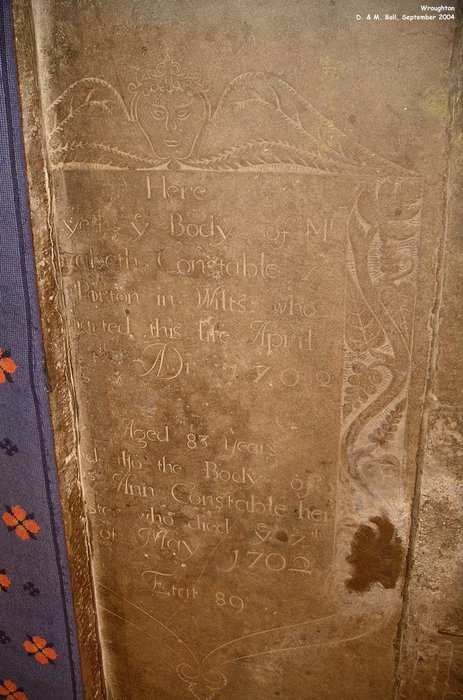 Wroughton
D. & M. Ball, September 2004
Here
yeth yͤ Body of Mʳˢ
zabeth Constable
Porton in Wilts: who
parted this life April
Aͦ Dͥ 1702
Aged 83 years
allso the Body of
Ann Constable her
ster who died yͤ
of May 1702
Etat 89